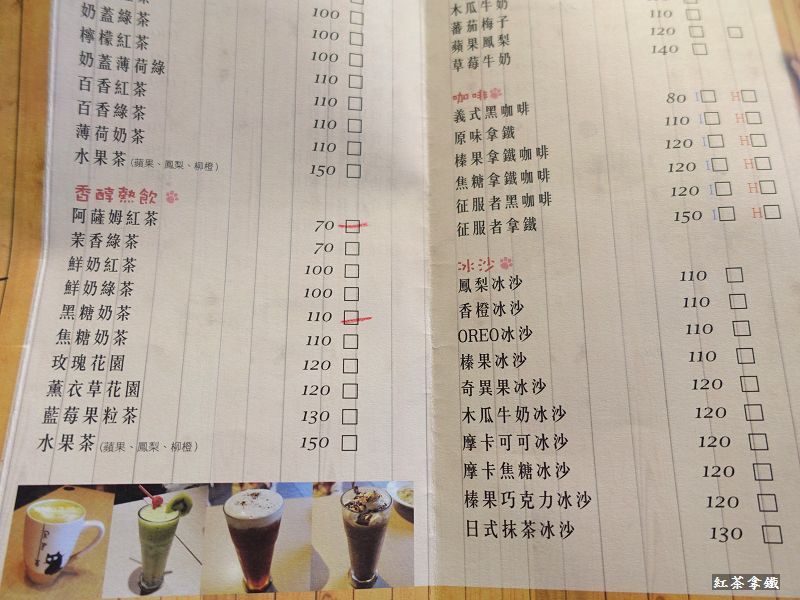 奶蓋綠茶 100
檸檬紅茶 100
奶蓋薄荷綠 100
百香紅茶 110
百香綠茶 110
薄荷奶茶 110
水果茶(蘋果、鳳梨、柳橙) 150
香醇熱飲
阿薩姆紅茶 70
茉香綠茶 70
鮮奶紅茶 100
鮮奶綠茶 100
黑糖奶茶 110
焦糖奶茶 110
玫瑰花園 120
薰衣草花園 120
藍莓果粒茶 130
水果茶(蘋果、鳳梨、柳橙) 150
木瓜牛奶
蕃茄梅子 110
蘋果鳳梨 120
草莓牛奶 140
咖啡
義式黑咖啡 80 I H
原味拿鐵 110 I H
榛果拿鐵咖啡 120 I H
焦糖拿鐵咖啡 120 I H
征服者黑咖啡 120 I H
征服者拿鐵 150 I H
冰沙
鳳梨冰沙 110
香橙冰沙 110
OREO冰沙 110
榛果冰沙 110
奇異果冰沙 120
木瓜牛奶冰沙 120
摩卡可可冰沙 120
摩卡焦糖冰沙 120
榛果巧克力冰沙 120
日式抹茶冰沙 130
紅茶拿鐵